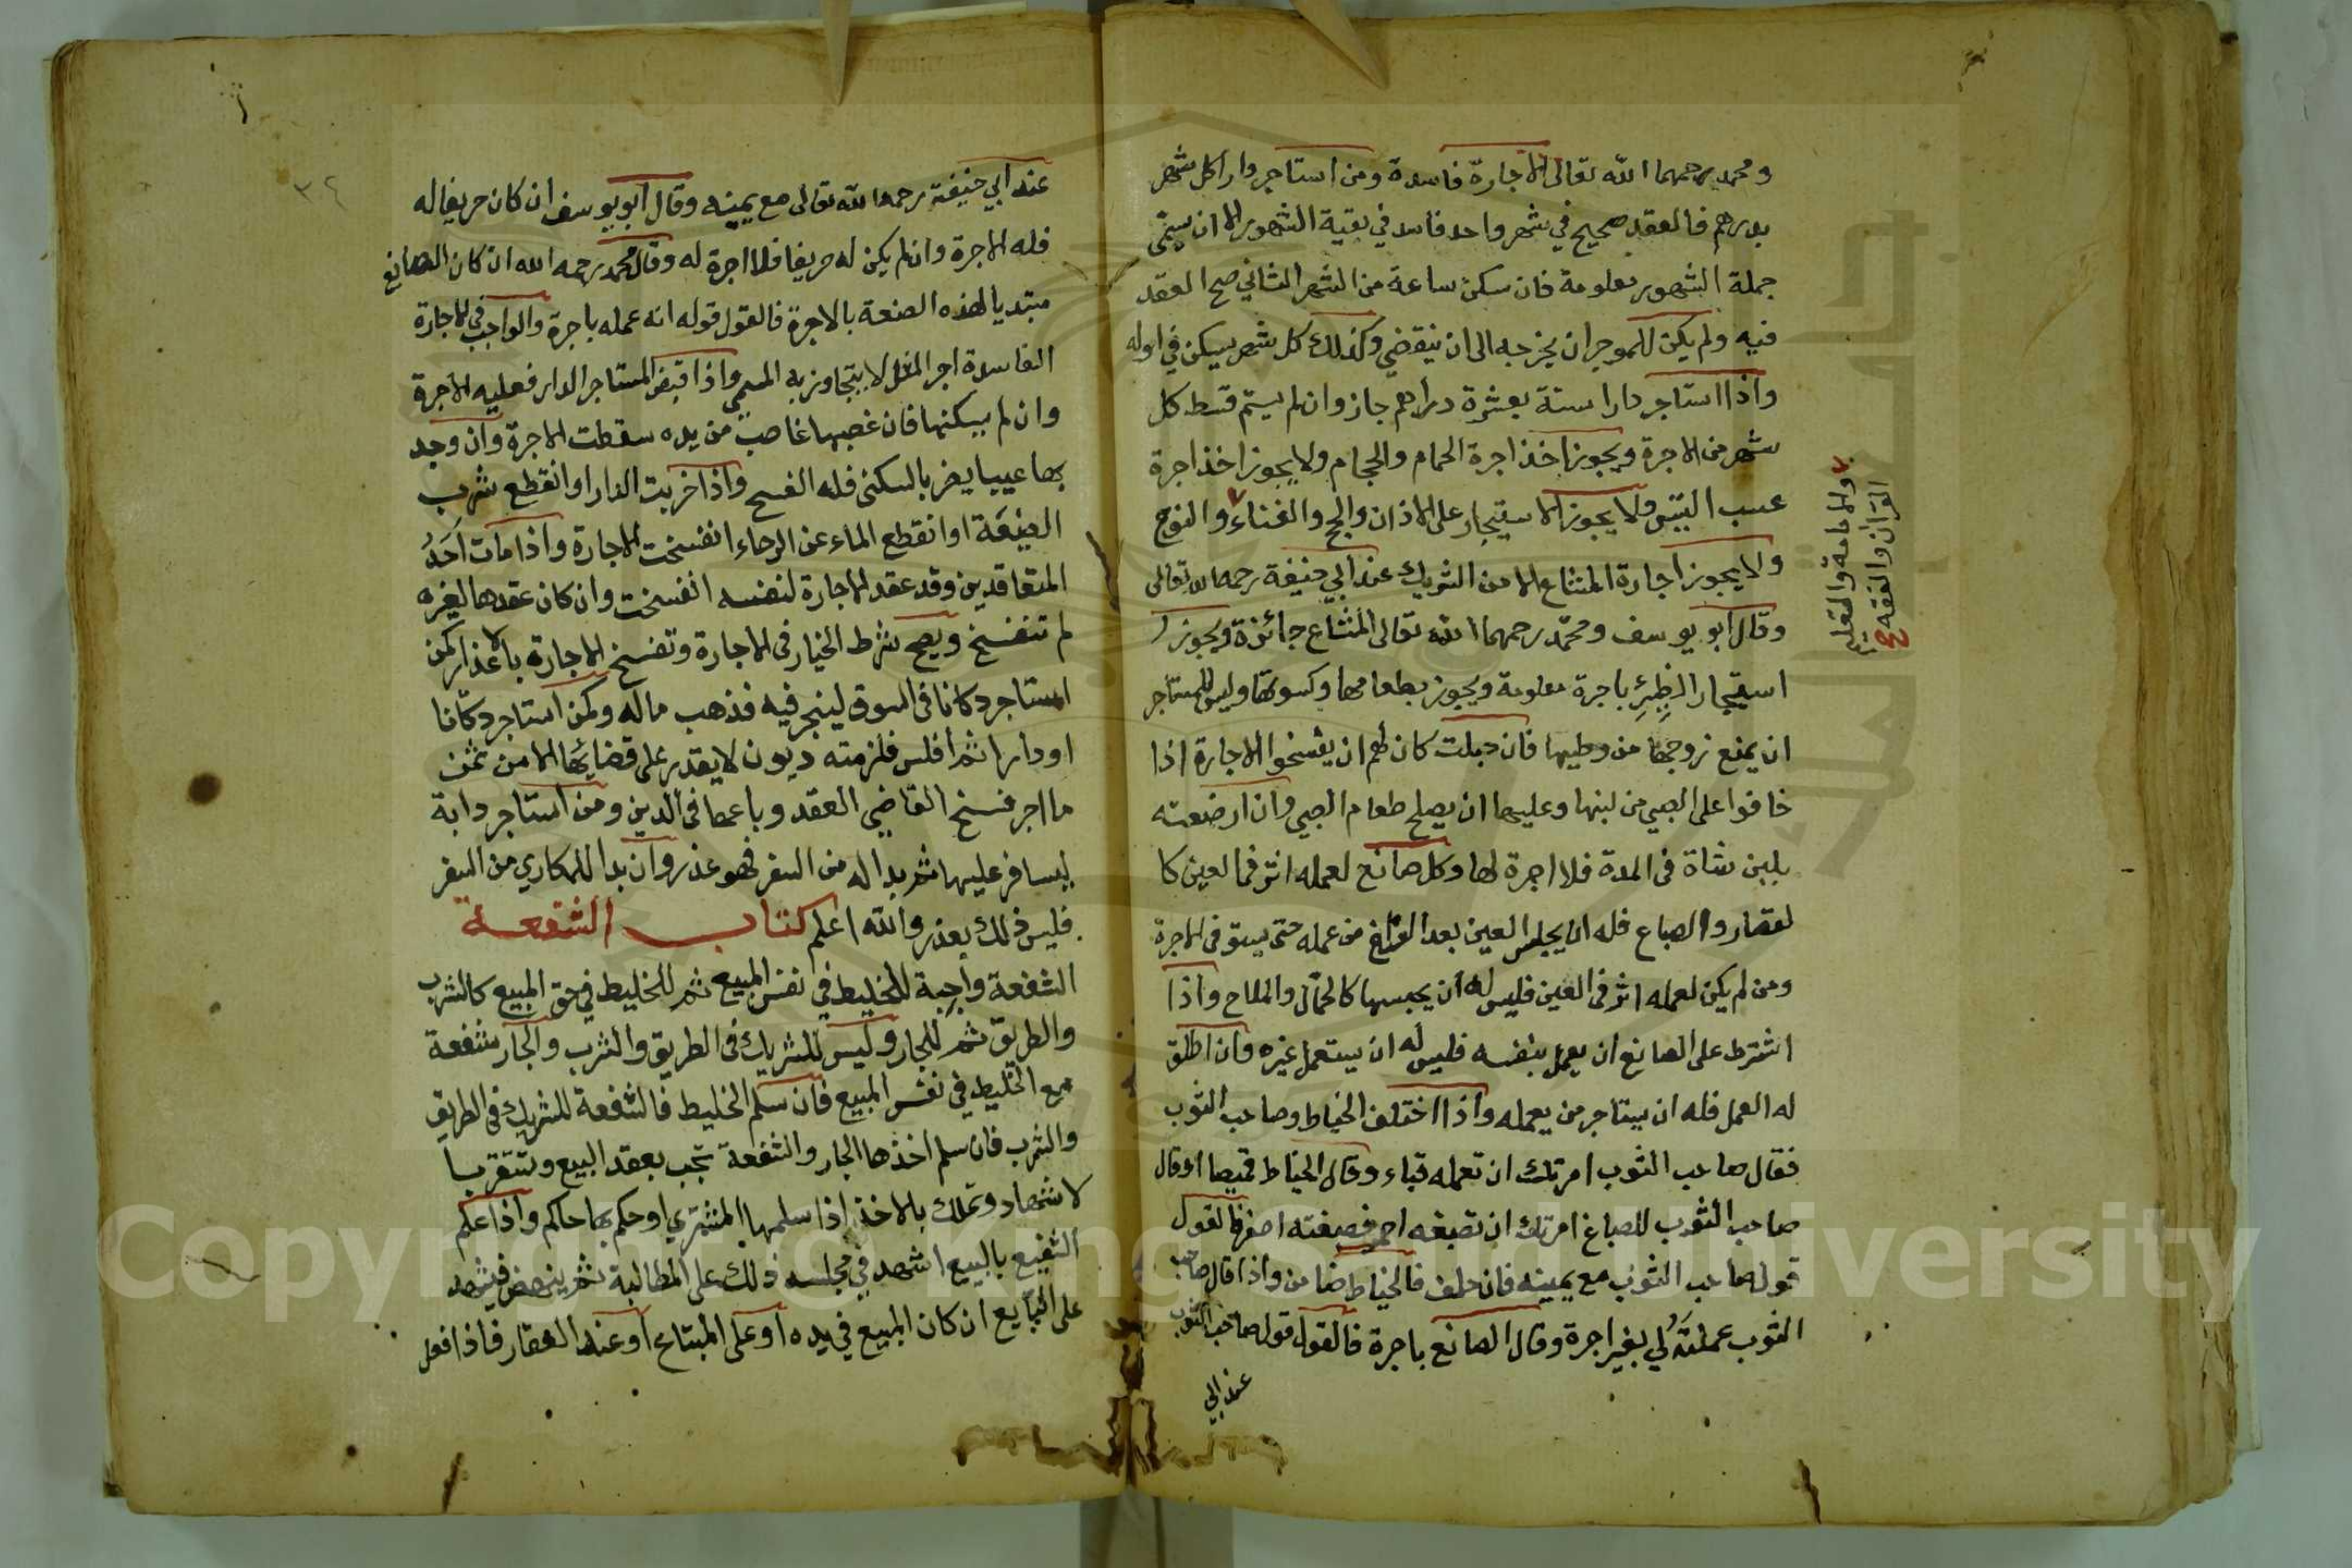 ومحمد رحمهما الله تعالى الاجارة فاسدة ومن استاجر دارا كل شهر
بدرهم فالعقد صحيح في شهر واحد فاسد في بقية الشهور الا ان يسمى
جملة الشهور معلومة فان سكن ساعة من الشهر الثاني صح العقد
فيه ولم يكن للموجر ان يخرجه الى ان ينقضي وكذلك كل شهر يسكن في اوله
واذا استاجر دارا سنة بعشرة دراهم جاز وان لم يسم قسط كل
شهر من الاجرة ويجوز اخذ اجرة الحمام والحجام ولا يجوز اخذ اجرة
عسب التيس ولا يجوز الاستيجار على الاذان والحج والغناء والنوح
والامامة والتعليم
القرآن والفقه صح
ولا يجوز اجارة المشاع الا من الشريك عند ابي حنيفة رحمه الله تعالى
وقال ابو يوسف ومحمد رحمهما الله تعالى المشاع جائزة ويجوز
استيجار الظئر باجرة معلومة ويجوز بطعامها وكسوتها وليس للمستاجر
ان يمنع زوجها من وطيها فان حبلت كان لهم ان يفسخوا الاجارة اذا
خافوا على الصبي من لبنها وعليها ان يصلح طعام الصبي وان ارضعته
بلبن شاة في المدة فلا اجرة لها وكل صانع لعمله اثر في العين كا
لقصار والصباع فله ان يحبس العين بعد الفراغ من عمله حتى يستوفى الاجرة
ومن لم يكن لعمله اثر في العين فليس له ان يحبسها كالحمال والملاح واذا
اشترط على الصانع ان يعمل بنفسه فليس له ان يستعمل غيره وان اطلق
له العمل فله ان يستاجر من يعمله واذا اختلف الخياط وصاحب الثوب
فقال صاحب الثوب امرتك ان تعمله قباء وقال الخياط قميصا او قال
صاحب الثوب للصباغ امرتك ان تصبغه احمر فصبغته اصفر فالقول
قول صاحب الثوب مع يمينه فان حلف فالخياط ضامن واذا قال صاحب
الثوب عملته لي بغير اجرة وقال الصانع باجرة فالقول قول صاحب الثوب
عند ابي
٣٤
عند ابي حنيفة رحمه الله تعالى مع يمينه وقال ابو يوسف ان كان حريفا له
فله الاجرة وان لم يكن له حريفا فلا اجرة له وقال محمد رحمه الله ان كان الصانع
مبتديا لهذه الصنعة بالاجرة فالقول قوله انه عمله باجرة والواجب في الاجارة
الفاسدة اجر المثل لا يتجاوز به المسمى واذا قبض المستاجر الدار فعليه الاجرة
وان لم يسكنها فان غصبها غاصب من يده سقطت الاجرة وان وجد
بها عيبا يضر بالسكنى فله الفسخ واذا خربت الدار او انقطع شرب
الضيعة او انقطع الماء عن الرحاء انفسخت الاجارة واذا مات احد
المتعاقدين وقد عقد الاجارة لنفسه انفسخت وان كان عقدها لغيره
لم تنفسخ ويصح شرط الخيار في الاجارة وتفسخ الاجارة بالاعذار كمن
استاجر دكانا في السوق ليتجر فيه فذهب ماله وكمن استاجر دكانا
او دارا ثم افلس فلزمته ديون لا يقدر على قضائها الا من ثمن
ما اجر فسخ القاضي العقد وباعها في الدين ومن استاجر دابة
ليسافر عليها ثم بدا له من السفر فهو عذر وان بدا للمكاري من السفر
فليس ذلك بعذر والله اعلم كتاب الشفعة
الشفعة واجبة للخليط في نفس المبيع ثم للخليط في حق المبيع كالشرب
والطريق ثم للجار وليس للشريك في الطريق والشرب والجار شفعة
مع الخليط في نفس المبيع فان سلم الخليط فالشفعة للشريك في الطريق
والشرب فان سلم اخذها الجار والشفعة تجب بعقد البيع وتستقر با
لاشهاد وتملك بالاخذ اذا سلمها المشتري او حكم بها حاكم واذا علم
الشفيع بالبيع اشهد في مجلسه ذلك على المطالبة ثم ينهض فيشهد
على البايع ان كان المبيع في يده او على المبتاع او عند العقار فاذا فعل
Copyright © King Saud University